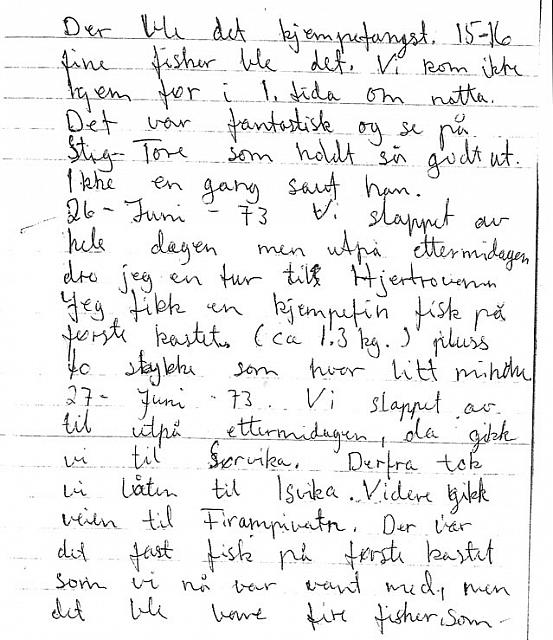 Der ble det kjempefangst. 15-16
fine fisker ble det. Vi kom ikke
hjem før i 1. tida om natta.
Det var fantastisk og se på
Stig-Tore som holdt så godt ut.
Ikke en gang sauf han.
26 - Juni - 73 Vi slappet av
hele dagen men utpå ettermidagen
dro jeg en tur til
Jeg fikk en kjempefin fisk på
første kastet. (ca 1.3 kg.) pluss
to stykke som hvor litt mindre
27 - Juni - 73. Vi slappet av
til utpå ettermidagen, da gikk
vi til Sørvika. Derfra tok
vi båten til Isvika. Videre gikk
veien til Der var
det fast fisk på første kastet
som vi nå var vant med, men
det ble bare fire fisker, som-